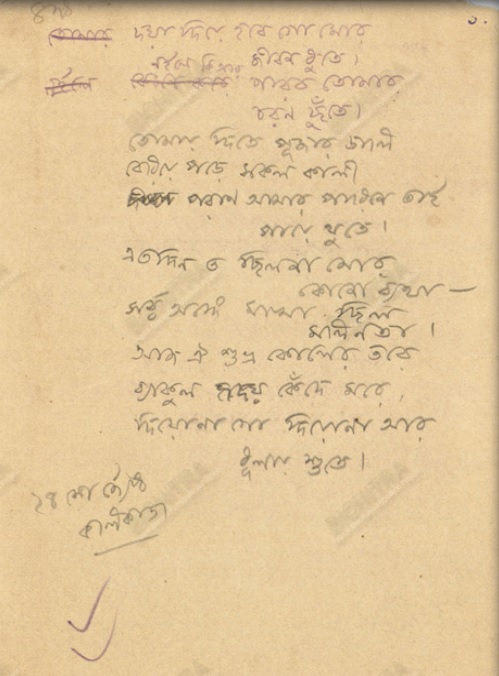 দয়া দিয়ে হবে গো মোর
জীবন ধুতে।
নইলে কি আর পারব তোমার
চরণ ছুঁতে।
তোমায় দিতে পূজার ডালি
বেরিয়ে পড়ে সকল কালী
পরাণ আমার পারিনে তাই
পায়ে থুতে।
এতদিন ত ছিলনা মোর
কোনো ব্যথা—
সর্ব্ব অঙ্গে মাখা ছিল
মলিনতা।
আজ ঐ শুভ্র কোলের তরে
ব্যাকুল হৃদয় কেঁদে মরে,
দিয়োনা গো দিয়োনা আর
ধূলায় শুতে।
কলিকাতা